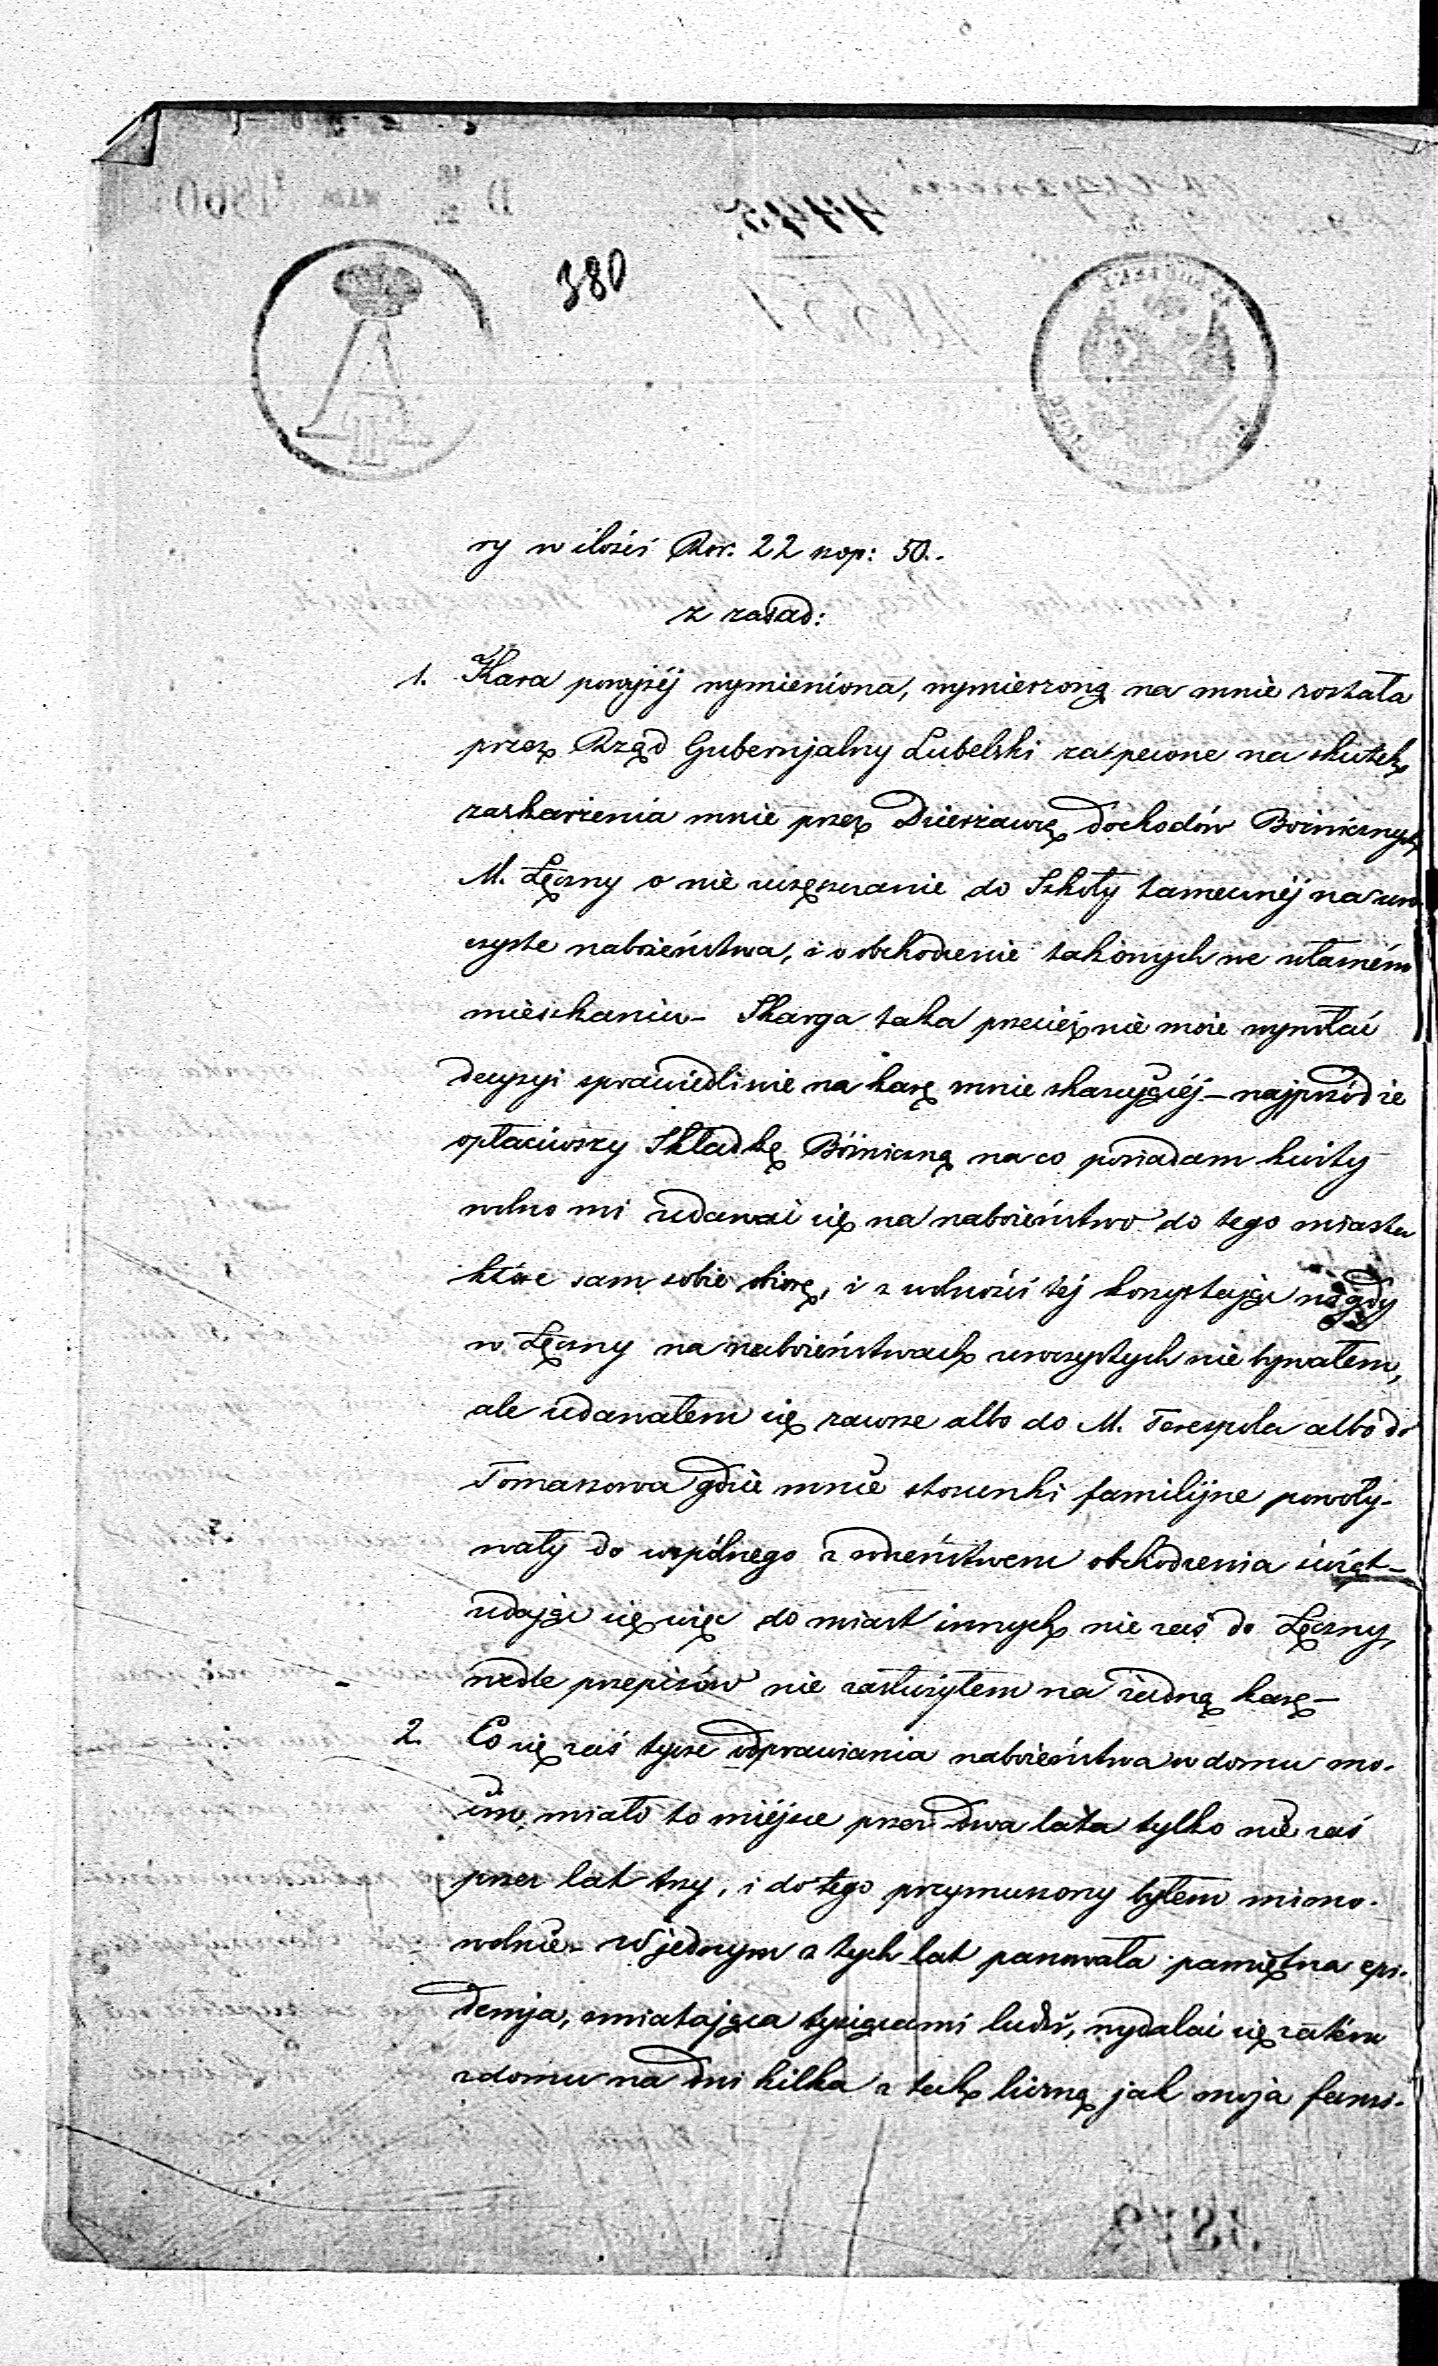 380
ry w ilości Rsr. 22 kop: 50.-
z zasad:
1. Kara powyżéj wymieniona, wymierzoną na mnie została
przez Rząd Gubernjalny Lubelski zapewne na skutek
zaskarżenia mnie przez Dzierżawcę dochodów Bożnicznych
M. Łęczny o nie uczęszczanie do Szkoły tamecznéj na uro-
czyste nabożeństwa, i o obchodzenie takowych we własném
mieszkaniu - Skarga taka przecież nie może wywołać
decyzyi sprawiedliwie na karę mnie skazującéj - najprzód że
opłaciwszy Składkę Bóżniczną na co posiadam kwity
wolno mi udawać się na nabożeństwo do tego miasta
które sam sobie obiorę, i z wolności téj korzystając nigdy
w Łęczny na nabożeństwach uroczystych nie bywałem,
ale udawałem się zawsze albo do M. Terespola albo do
Tomaszowa gdzie mnie stosunki familijne powoły-
wały do wspólnego z rodzeństwem obchodzenia świąt -
udając się więc do miast innych nie zaś do Łęczny,
wedle przepisów nie zasłużyłem na żadną karę -
2. Co się zaś tycze odprawiania nabożeństwa w domu mo-
im, miało to miéjsce przez dwa lata tylko nie zaś
przez lat trzy, i do tego przymuszony byłem mimo-
wolnie - W jednym z tych lat panowała pamiętna epi-
demja, zmiatająca tysiącami ludzi, wydalać się zatém
z domu na dni kilka z tak liczną jak moja fami-